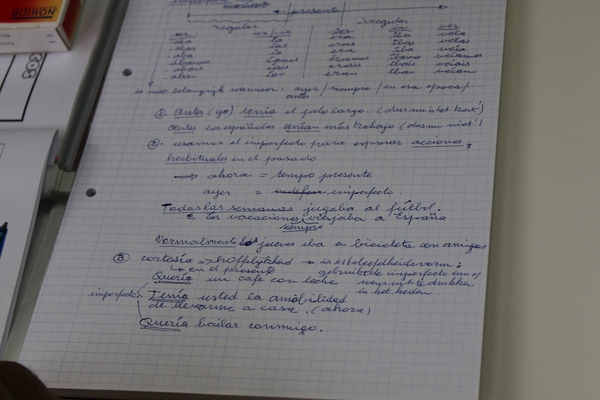 BOIRON
presente
regular
irregular
ar er/ir ser ir ver
aba ía era iba veía
abas ías eras ibas veías
aba ía era iba veía
ábamos íamos éramos íbamos veíamos
abais íais erais ibais veíais
aban ían eran iban veían
is niet belangrijk wanneer: ayer / siempre / en esa época /
antes
① Antes (yo) tenía el pelo largo. (dus nu niet kort!)
Antes los españoles tenían más trabajo (dus nu niet!)
② usamos el imperfecto para expresar acciones
habituales en el pasado
→ ahora = tiempo presente
ayer = imperfecto.
Todas las semanas jugaba al fútbol.
En vacaciones viajaba a España
siempre
Normalmente los jueves iba en bicicleta con amigos
③ cortesía → hoffelijkheid → is beleefdheidsvorm;
↳ en el presente gebruikt de imperfecto om
Quería un café con leche wens uit te drukken
in het heden.
imperfecto Tenía usted la amabilidad
de llevarme a casa. (ahora)
Quería bailar conmigo.